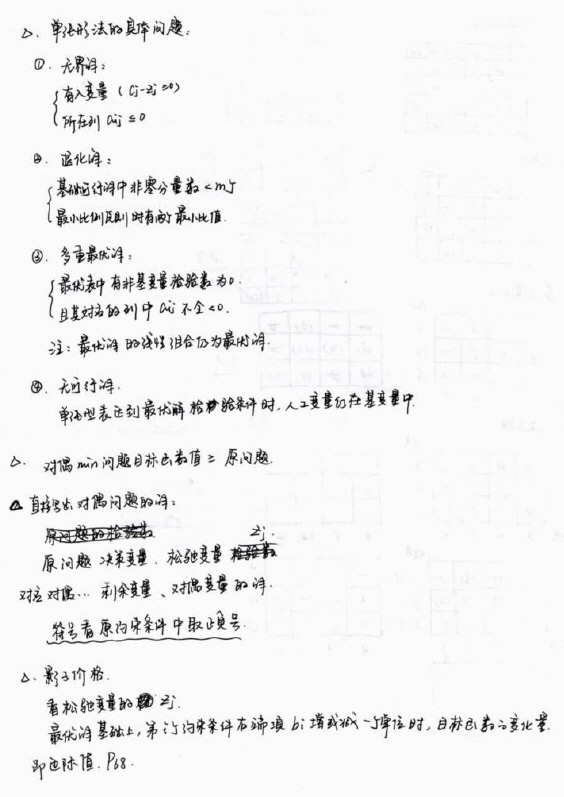 △. 单纯形法的具体问题：
①. 无界解：
有入变量 ( Cj-zj ≥0)
所在列 aij ≤ 0
②. 退化解：
基础可行解中非零分量数 < m个
最小比例原则时有两个最小比值.
③. 多重最优解：
最优表中有非基变量检验数为0.
且其对应的列中 aij 不全<0.
注：最优解的线性组合仍为最优解.
④. 无可行解.
单纯型表达到最优解检验条件时，人工变量仍在基变量中.
△. 对偶min问题目标函数值 ≥ 原问题.
△ 直接写出对偶问题的解：
原问题的检验数
zj.
原问题 决策变量、松弛变量 检验数
对应对偶… 剩余变量、对偶变量的解.
符号看原约束条件中取正负号.
△. 影子价格.
看松弛变量的 zj.
最优解基础上，第i个约束条件右端项 bi 增或减一个单位时，目标函数的变化量.
即边际值. P68.